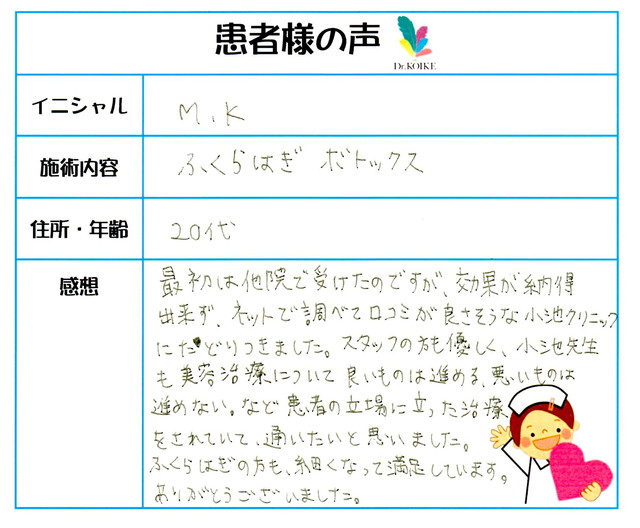 患者様の声
Dr.KOIKE
イニシャル
M.K
施術内容
ふくらはぎ ボトックス
住所・年齢
20代
感想
最初は他院で受けたのですが、効果が納得
出来ず、ネットで調べて口コミが良さそうな小池クリニック
にたどりつきました。スタッフの方も優しく、小池先生
も美容治療について良いものは進める、悪いものは
進めない。など患者の立場に立った治療
をされていて、通いたいと思いました。
ふくらはぎの方も、細くなって満足しています。
ありがとうございました。